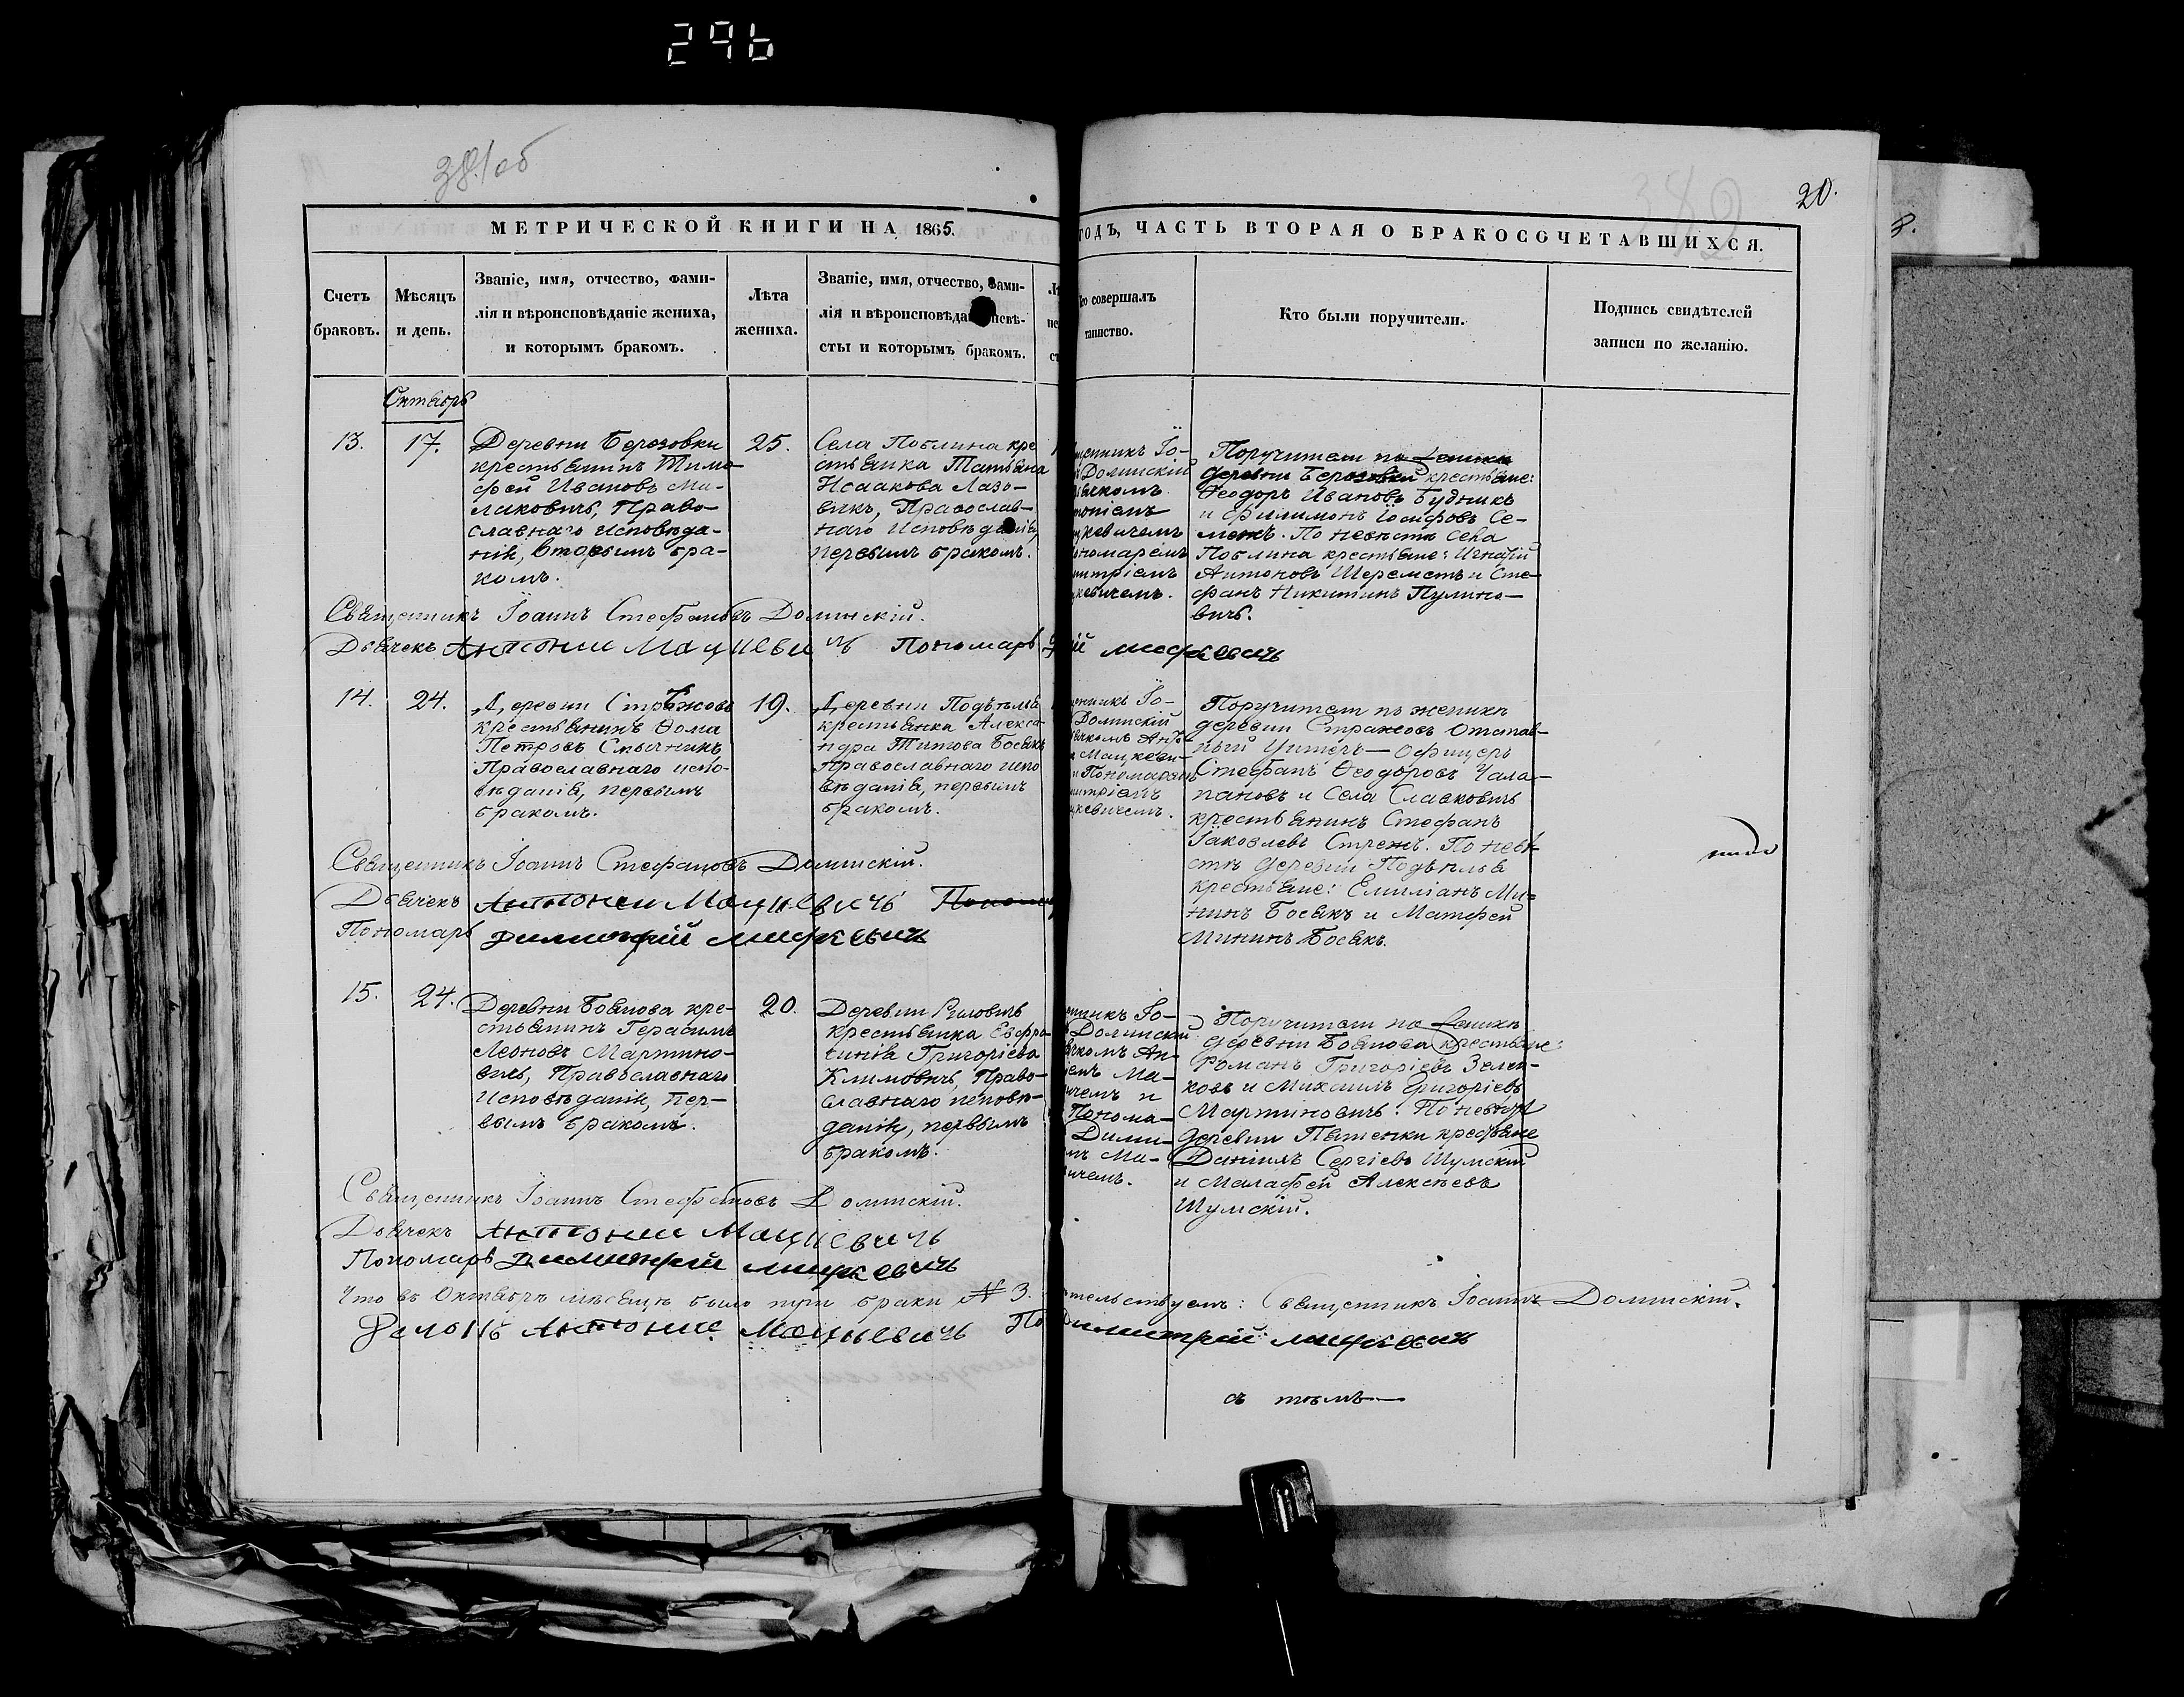 296
381об
20.
МЕТРИЧЕСКОЙ КНИГИ НА 1865.
ГОДЪ, ЧАСТЬ ВТОРАЯ О БРАКОСОЧЕТАВШИХСЯ.
Счетъ браковъ.
Мѣсяцъ и день.
Званіе, имя, отчество, фами-
лія и вѣроисповѣданіе жениха,
и которымъ бракомъ.
Лѣта жениха.
Званіе, имя, отчество, фами-
лія и вѣроисповѣда невѣ-
сты и которымъ бракомъ.
совершалъ
таинство.
Кто были поручители.
Подпись свидѣтелей
записи по желанію.
Октябрь
13.
17.
Деревни Березовки
крестьянинъ Тимо-
фей Ивановъ Ми-
лаковичъ, Право-
славнаго исповѣда-
нія, вторымъ бра-
комъ.
25.
Села Поблина кре
стьянка Татьяна
Исаакова Лазо-
викъ, Православ-
наго исповѣданія,
первымъ бракомъ.
щенникъ Іо-
Долинскій
ячкомъ
тоніемъ
цкевичемъ
ономаремъ
митріемъ
кевичемъ.
Поручители по
деревни Березовки крестьяне:
Ѳеодоръ Ивановъ Будникъ
и Филимонъ Іосифовъ Се-
менъ. По невѣстѣ села
Поблина крестьяне: Игнатій
Антоновъ Шереметъ и Сте-
фанъ Никитинъ Пулино-
вичъ.
Священникъ Іоаннъ Стефановъ Долинскій.
Дьячекъ Антоній Мацкевичъ Пономарь й Мицкевичъ
14.
24.
Деревни Стражовъ
крестьянинъ Ѳома
Петровъ Смычникъ
Православнаго испо-
вѣданія, первымъ
бракомъ.
19.
Деревни Подѣтелья
крестьянка Алекса-
ндра Титова Босякъ
Православнаго испо
вѣданія, первымъ
бракомъ.
щенникъ Іо-
Долинскій
ячкомъ Анто-
Мацкеви-
и Пономаремъ
митріемъ
цкевичемъ.
Поручители по женихѣ
деревни Стражовъ Отстав-
ный Унтеръ-Офицеръ
Стефанъ Ѳеодоровъ Чала-
пановъ и села Славковичъ
крестьянинъ Стефанъ
Іаковлевъ Стренъ. По невѣ-
стѣ деревни Подѣтелья
крестьяне: Емиліанъ Ми-
нинъ Босякъ и Матфей
Мининъ Босякъ.
Священникъ Іоаннъ Стефановъ Долинскій.
Дьячекъ Антоній Мацкевичъ
Пономарь Димитрій Мицкевичъ
15.
24.
Деревни Боянова кре-
стьянинъ Герасимъ
Леоновъ Мартино-
вичъ, Православнаго
исповѣданія, пер-
вымъ бракомъ.
20.
Деревни
крестьянка Евфро-
синія Григоріева
Климовичъ, Право-
славнаго исповѣ-
данія, первымъ
бракомъ.
нникъ Іо-
Долинскій
ячкомъ Ан-
емъ Ма-
чемъ и
Понома-
Дими-
мъ Ми-
ичемъ.
Поручители по женихѣ
деревни Боянова крестьяне:
Романъ Григоріевъ Зелен-
ковъ и Михаилъ Григоріевъ
Мартиновичъ. По невѣстѣ
деревни Пятенки крестьяне
Даніилъ Сергіевъ Шумскій
и Малафей Алексѣевъ
Шумскій.
Священникъ Іоаннъ Стефановъ Долинскій.
Дьячекъ Антоній Мацкевичъ
Пономарь Димитрій Мицкевичъ
Что въ Октябрѣ мѣсяцѣ было три браки № 3. тельствуемъ: Священникъ Іоаннъ Долинскій.
Антоній Мацкевичъ По Димитрій Мицкевичъ
съ тѣмъ